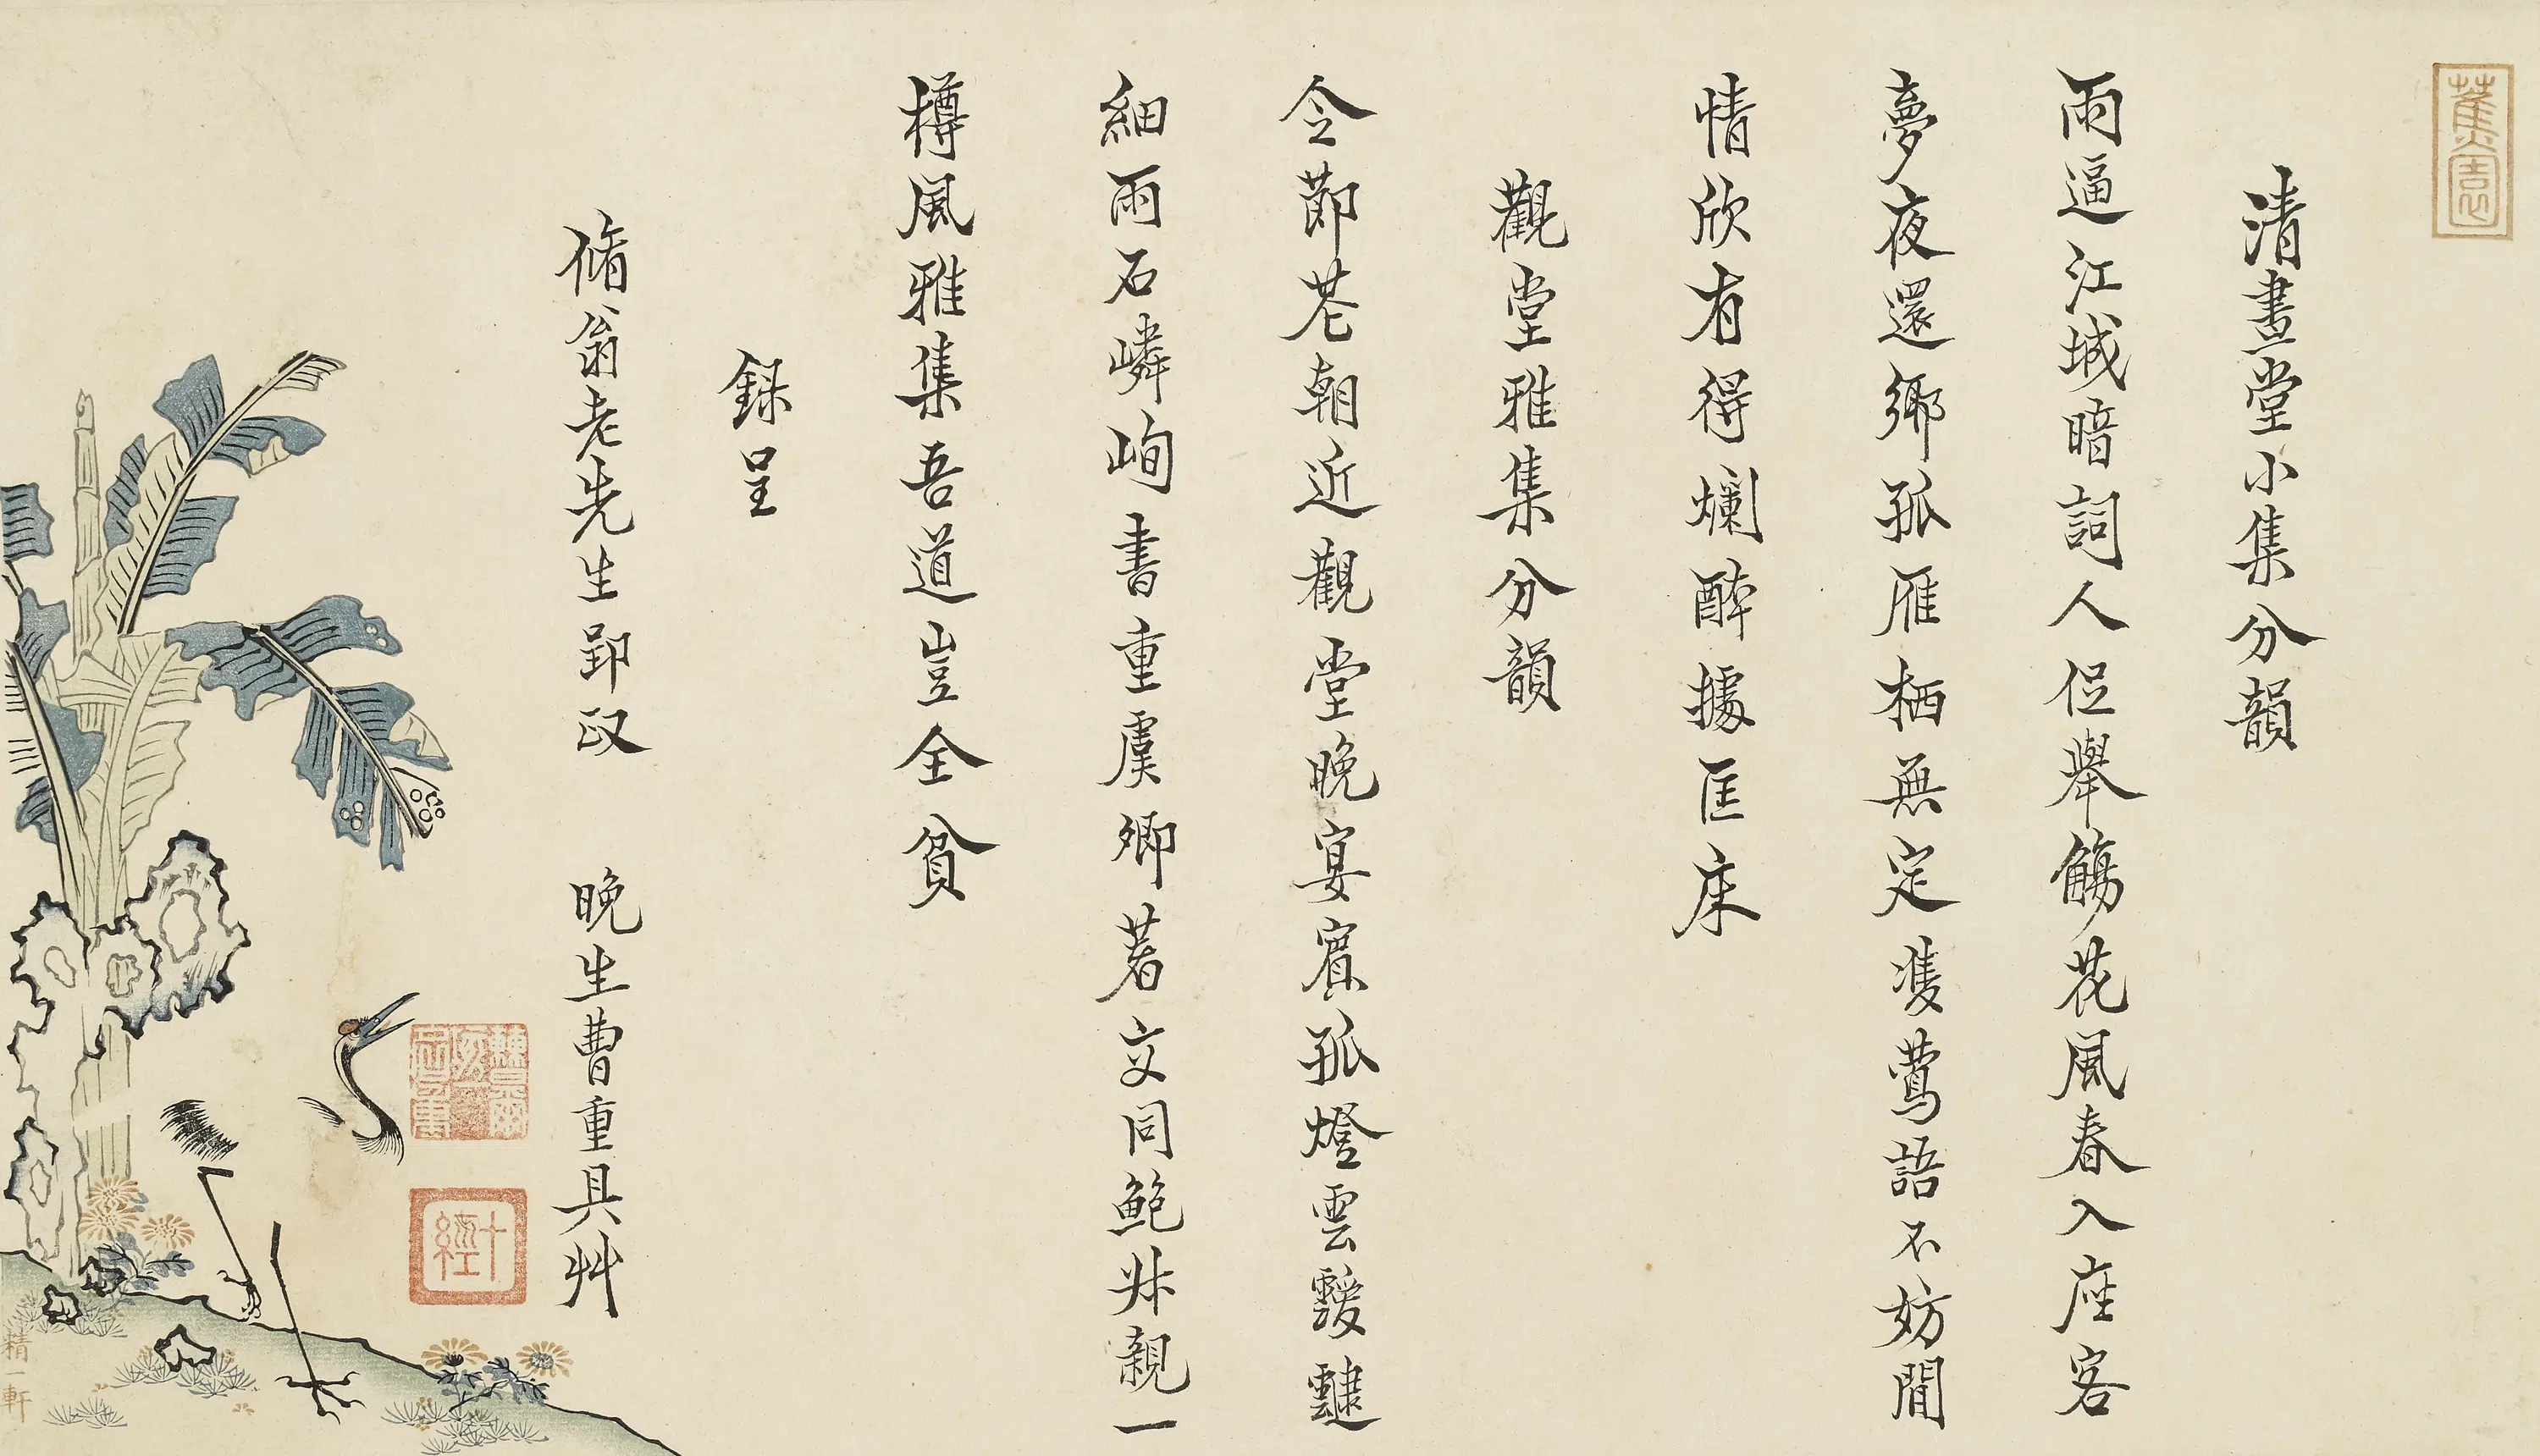 蕉園
清晝堂小集分韻
雨逼江城暗詞人促舉觴花風春入座客
夢夜還鄉孤雁栖無定雙鶯語不妨閒
情欣有得爛醉據匡床
觀堂雅集分韻
令節花朝近觀堂晚宴賓孤燈雲靉靆
細雨石嶙峋書重虞卿著交同鮑叔親一
樽風雅集吾道豈全貧
録呈
脩翁老先生郢政 晚生曹重具艸
十經
精一軒